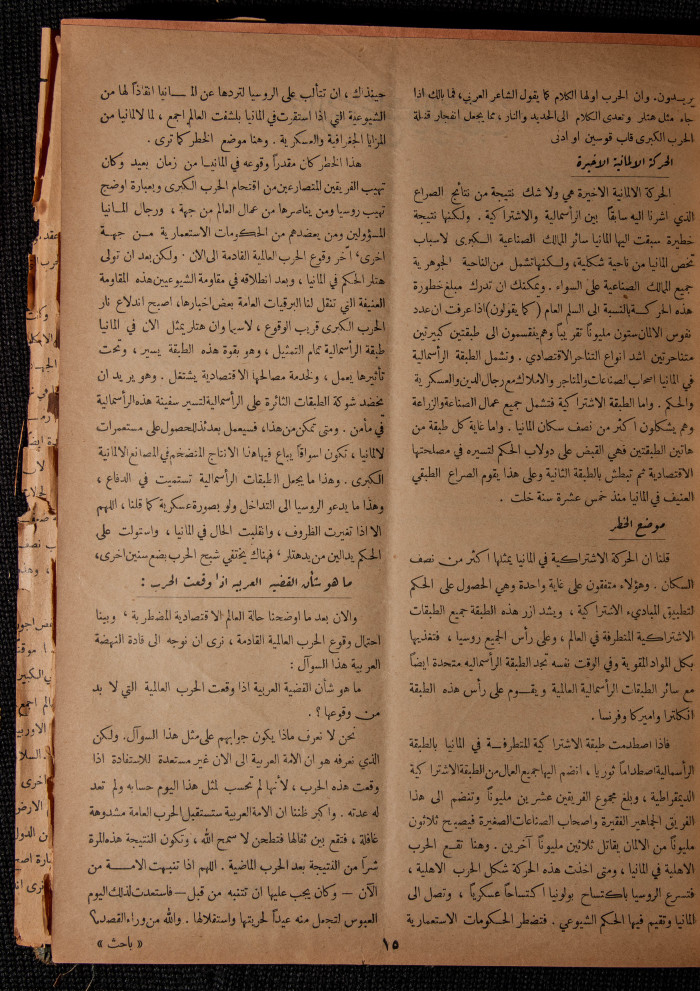 يريدون. وان الحرب اولها الكلام كما يقول الشاعر العربي، فما بالك اذا
جاء مثل هتلر وتعدى الكلام الى الحديد والنار، مما يجعل انفجار قنبلة
الحرب الكبرى قاب قوسين او ادنى
الحركة الالمانية الاخيرة
الحركة الالمانية الاخيرة هي ولا شك نتيجة من نتائج الصراع
الذي اشرنا اليه سابقاً بين الرأسمالية والاشتراكية. ولكنها نتيجة
خطيرة سبقت اليها المانيا سائر الممالك الصناعية الكبرى لاسباب
تخص المانيا من ناحية شكلية، ولكنها تشمل من الناحية الجوهرية
جميع الممالك الصناعية على السواء. ويمكنك ان تدرك مبلغ خطورة
هذه الحركة بالنسبة الى السلم العام (كما يقولون) اذا عرفت ان عدد
نفوس الالمان ستون مليوناً تقريباً وهم ينقسمون الى طبقتين كبيرتين
متناحرتين اشد انواع التناحر الاقتصادي. وتشمل الطبقة الرأسمالية
في المانيا اصحاب الصناعات والمتاجر والاملاك مع رجال الدين والعسكرية
والحكم. واما الطبقة الاشتراكية فتشمل جميع عمال الصناعة والزراعة
وهم يشكلون اكثر من نصف سكان المانيا. واما غاية كل طبقة من
هاتين الطبقتين فهي القبض على دولاب الحكم لتسيره في مصلحتها
الاقتصادية ثم تبطش بالطبقة الثانية وعلى هذا يقوم الصراع الطبقي
العنيف في المانيا منذ خمس عشرة سنة خلت.
موضع الخطر
قلنا ان الحركة الاشتراكية في المانيا يمثلها اكثر من نصف
السكان. وهؤلاء متفقون على غاية واحدة وهي الحصول على الحكم
لتطبيق المباديء الاشتراكية، ويشد ازر هذه الطبقة جميع الطبقات
الاشتراكية المتطرفة في العالم، وعلى رأس الجميع روسيا، فتغذيها
بكل المواد المقوية وفي الوقت نفسه تجد الطبقة الرأسماليه متحدة ايضاً
مع سائر الطبقات الرأسمالية العالمية ويقوم على رأس هذه الطبقة
انكلترا واميركا وفرنسا.
فاذا اصطدمت طبقة الاشتراكية المتطرفة في المانيا بالطبقة
الرأسمالية اصطداماً ثوريا، انضم اليها جميع العمال من الطبقة الاشتراكية
الديمقراطية، وبلغ مجموع الفريقين عشرين مليوناً وتنضم الى هذا
الفريق الجماهير الفقيرة واصحاب الصناعات الصغيرة فيصبح ثلاثون
مليوناً من الالمان يقاتل ثلاثين مليوناً آخرين. وهنا تقع الحرب
الاهلية في المانيا، ومتى اخذت هذه الحركة شكل الحرب الاهلية،
فتسرع الروسيا باكتساح بولونيا اكتساحاً عسكرياً، وتصل الى
المانيا وتقيم فيها الحكم الشيوعي. فتضطر الحكومات الاستعمارية
حينذاك، ان تتألب على الروسيا لتردها عن المانيا انقاذاً لها من
الشيوعية التي اذا استقرت في المانيا بلشفت العالم اجمع، لما لالمانيا من
المزايا الجغرافية والعسكرية. وهنا موضع الخطر كما ترى.
هذا الخطر كان مقدراً وقوعه في المانيا من زمان بعيد وكان
تهيب الفريقين المتصارعين من اقتحام الحرب الكبرى وبعبارة اوضح
تهيب روسيا ومن يناصرها من عمال العالم من جهة، ورجال المانيا
المسؤولين ومن يعضدهم من الحكومات الاستعمارية من جهة
اخرى، أخر وقوع الحرب العالمية القادمة الى الان. ولكن بعد ان تولى
هتلر الحكم في المانيا، وبعد انطلاقه في مقاومة الشيوعيين هذه المقاومة
العنيفة التي تنقل لنا البرقيات العامة بعض اخبارها، اصبح اندلاع نار
الحرب الكبرى قريب الوقوع، لاسيما وان هتلر يمثل الان في المانيا
طبقة الرأسمالية تمام التمثيل، وهو بقوة هذه الطبقة يسير، وتحت
تأثيرها يعمل، ولخدمة مصالحها الاقتصادية يشتغل. وهو يريد ان
يخضد شوكة الطبقات الثائرة على الرأسمالية لتسير سفينة هذه الرأسمالية
في مأمن. ومتى تمكن من هذا، فسيعمل بعدئذ للحصول على مستعمرات
لالمانيا، تكون اسواقاً يباع فيها هذا الانتاج المتضخم في المصانع الالمانية
الكبرى. وهذا ما يجعل الطبقات الرأسمالية تستميت في الدفاع،
وهذا ما يدعو الروسيا الى التداخل ولو بصورة عسكرية كما قلنا، اللهم
الا اذا تغيرت الظروف، وانقلبت الحال في المانيا، واستولت على
الحكم يد الين من يد هتلر، فهناك يختفي شبح الحرب بضع سنين اخرى،
ما هو شأن القضيه العربيه اذا وقعت الحرب :
والان بعد ما اوضحنا حالة العالم الاقتصادية المضطربة، وبينا
احتمال وقوع الحرب العالمية القادمة، نرى ان نوجه الى قادة النهضة
العربية هذا السوآل:
ما هو شأن القضية العربية اذا وقعت الحرب العالمية التي لا بد
من وقوعها؟.
نحن لا نعرف ماذا يكون جوابهم على مثل هذا السوآل. ولكن
الذي نعرفه هو ان الامة العربية الى الان غير مستعدة للاستفادة اذا
وقعت هذه الحرب، لأنها لم تحسب لمثل هذا اليوم حسابه ولم تعد
له عدته. واكبر ظننا ان الامة العربية ستستقبل الحرب العامة مشدوهة
غافلة، فتقع بين ثفالها فتطحن لا سمح الله، وتكون النتيجة هذه المرة
شراً من النتيجة بعد الحرب الماضية. اللهم اذا تنبهت الامة من
الآن — وكان يجب عليها ان تتنبه من قبل — فاستعدت لذلك اليوم
العبوس لتجعل منه عيداً لحريتها واستقلالها. والله من وراء القصد.؟
« باحث »
١٥